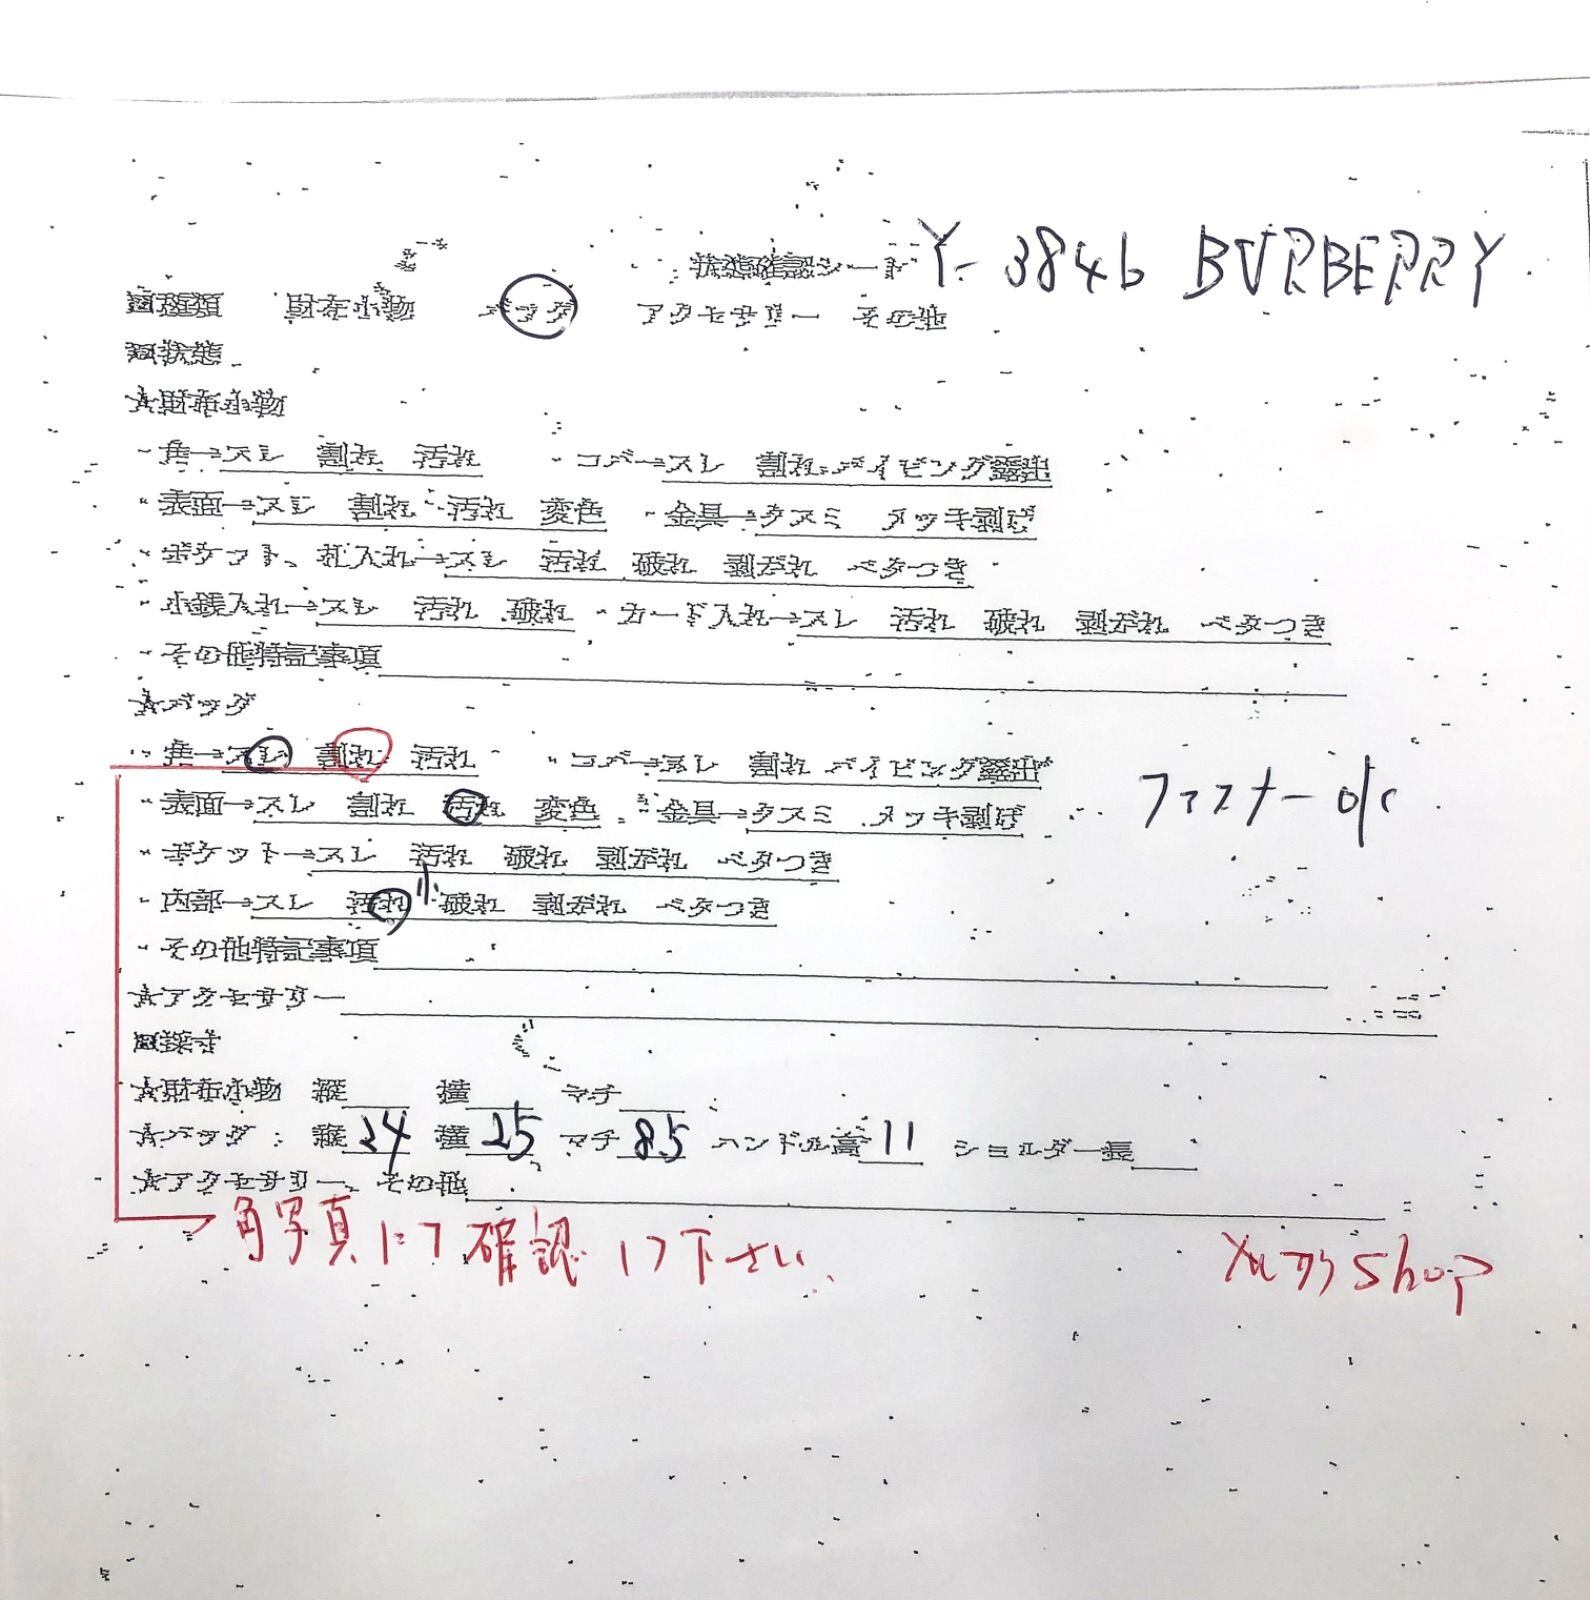 状態確認シート Y-3846 BURBERRY
□種類 財布小物 バッグ アクセサリー その他
□状態
☆財布小物
・角→スレ 割れ 汚れ ・コバ→スレ 割れ パイピング露出
・表面→スレ 割れ 汚れ 変色 ・金具→クスミ メッキ剥げ
・ポケット、札入れ→スレ 汚れ 破れ 剥がれ ベタつき
・小銭入れ→スレ 汚れ 破れ ・カード入れ→スレ 汚れ 破れ 剥がれ ベタつき
・その他特記事項
☆バッグ
・角→スレ 割れ 汚れ ・コバ→スレ 割れ パイピング露出
・表面→スレ 割れ 汚れ 変色 ・金具→クスミ メッキ剥げ ファスナーo/c
・ポケット→スレ 汚れ 破れ 剥がれ ベタつき
・内部→スレ 汚れ 小 破れ 剥がれ ベタつき
・その他特記事項
☆アクセサリー
□採寸
☆財布小物 縦 横 マチ
☆バッグ : 縦24 横25 マチ85 ハンドル高11 ショルダー長
☆アクセサリー、その他
角写真にて確認して下さい
shop